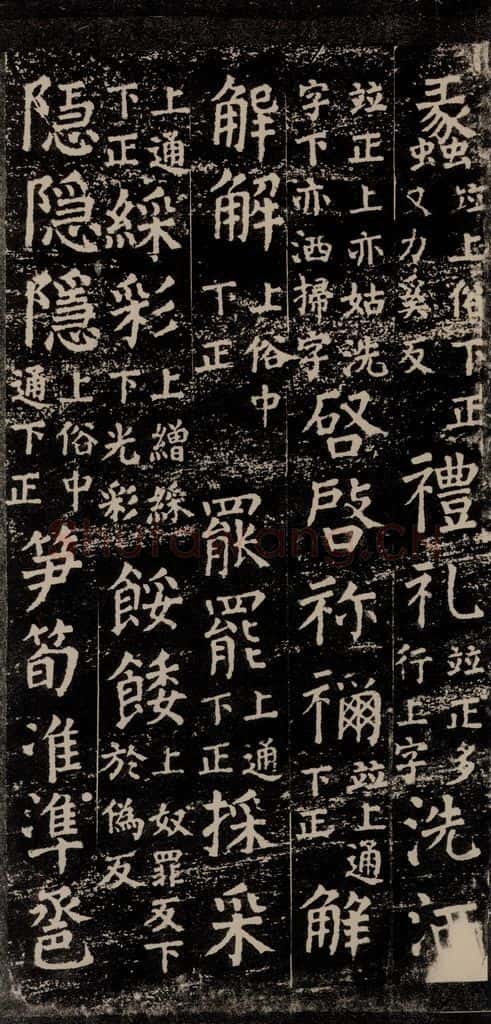 蠡竝上俗下正又力奚反禮礼竝正多行上字洗洒
竝正上亦姑洗字下亦洒掃字啓啓祢禰竝上通下正解
解解上俗中下正罷罷上通下正採采
上通下正綵彩上繒綵下光彩餒餧上奴罪反下於偽反
隐隠隱上俗中通下正笋筍准準卺